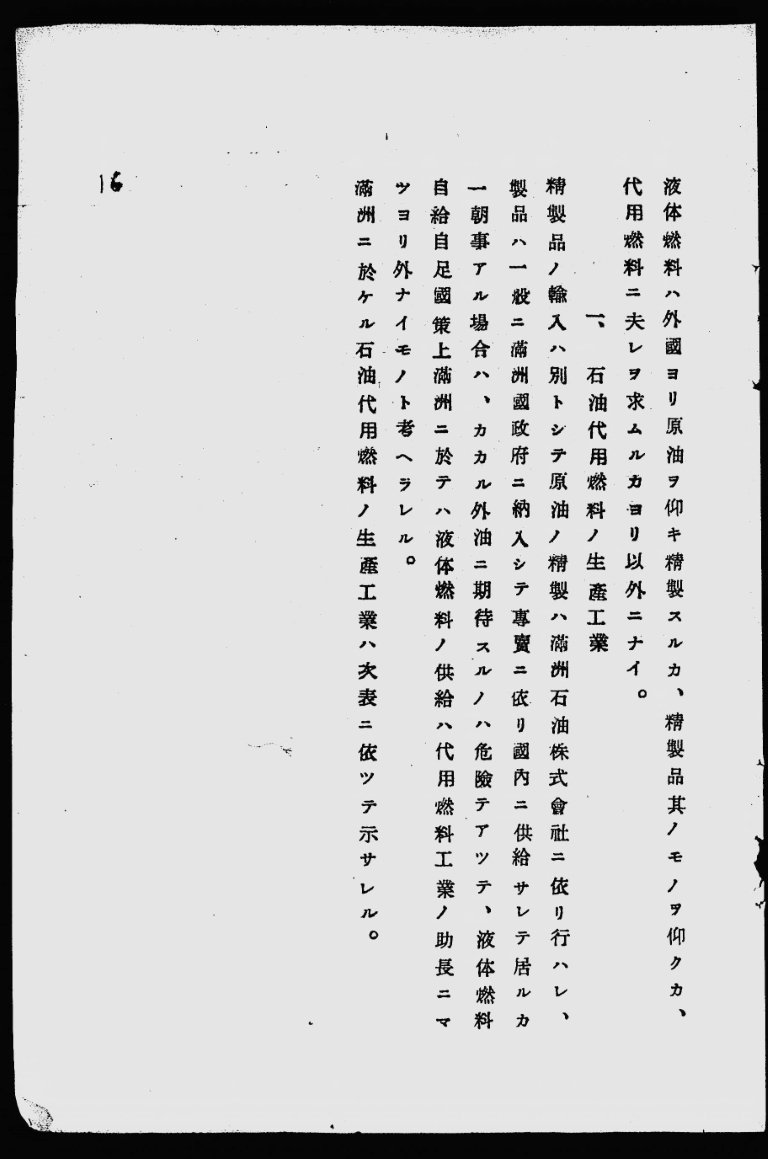 液体燃料ハ外國ヨリ原油ヲ仰キ精製スルカ、精製品其ノモノヲ仰クカ、
代用燃料ニ夫レヲ求ムルカヨリ以外ニナイ。
一、石油代用燃料ノ生產工業
精製品ノ輸入ハ別トシテ原油ノ精製ハ滿洲石油株式會社ニ依リ行ハレ、
製品ハ一般ニ滿洲國政府ニ納入シテ專賣ニ依リ國內ニ供給サレテ居ルカ
一朝事アル場合ハ、カカル外油ニ期待スルノハ危險テアツテ、液体燃料
自給自足國策上滿洲ニ於テハ液体燃料ノ供給ハ代用燃料工業ノ助長ニマ
ツヨリ外ナイモノト考ヘラレル。
滿洲ニ於ケル石油代用燃料ノ生產工業ハ次表ニ依ツテ示サレル。
16